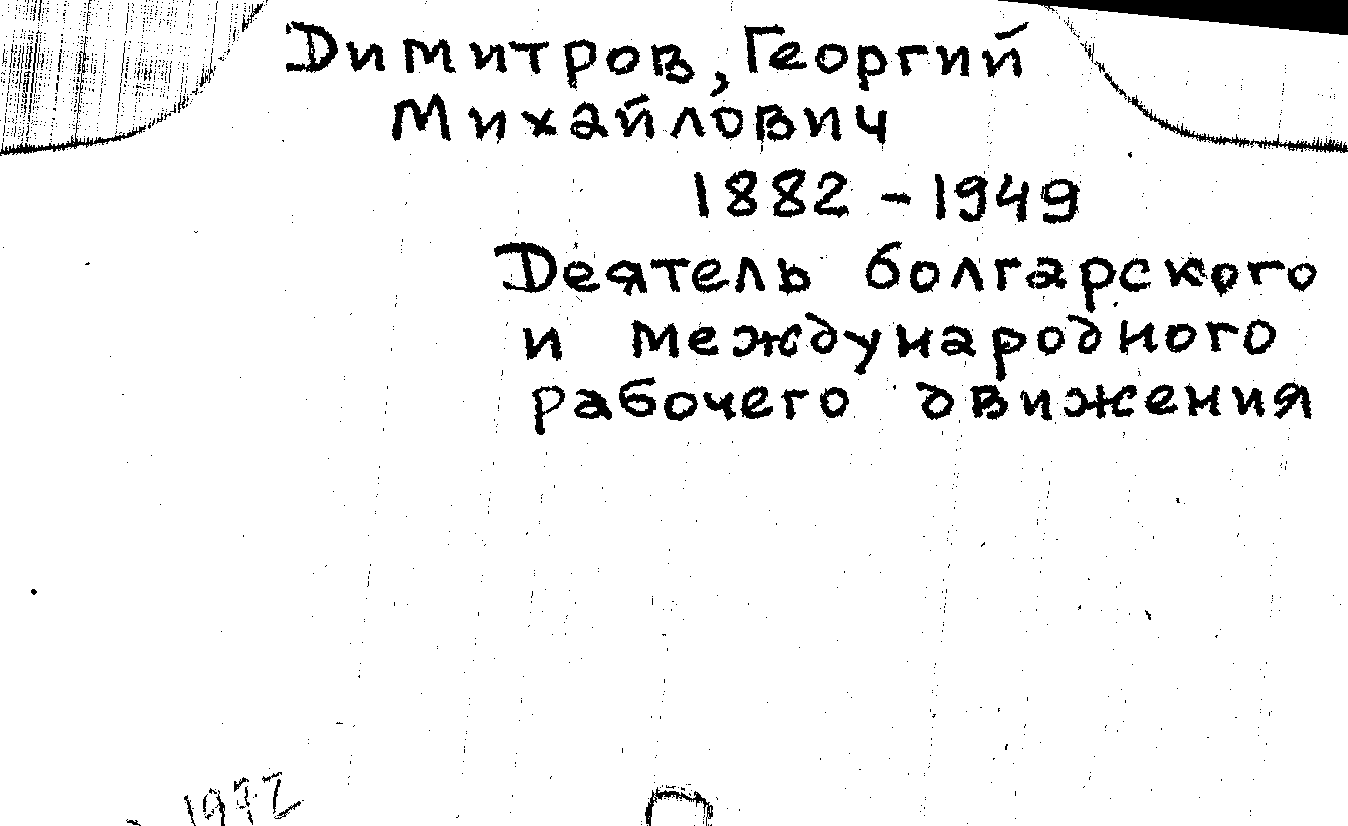 Димитров, Георгий
Михайлович
1882 - 1949
Деятель болгарского
и международного
рабочего движения
1972